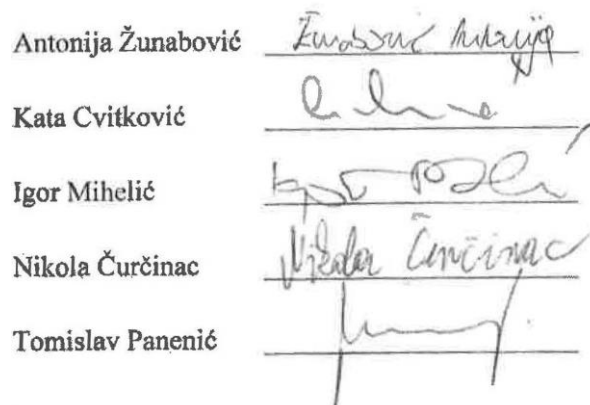 Antonija Žunabović Žunabović Antonija
Kata Cvitković
Igor Mihelić Igor
Nikola Čurčinac Nikola Čurčinac
Tomislav Panenić